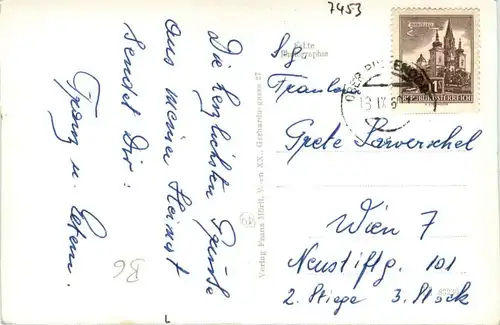 7453
Die herzlichsten Grüße
aus meiner Heimat
sendet Dir:
Franz u. Eltern.
B6
Echte
Photographie
Verlag Franz Mörtl, Wien XX., Gerhardusgasse 27
S. g.
Fraulein
Grete
Wien 7
Neustiftg. 101
2. Stiege 3. Stock
1S
REPUBLIK ÖSTERREICH
13. IX.